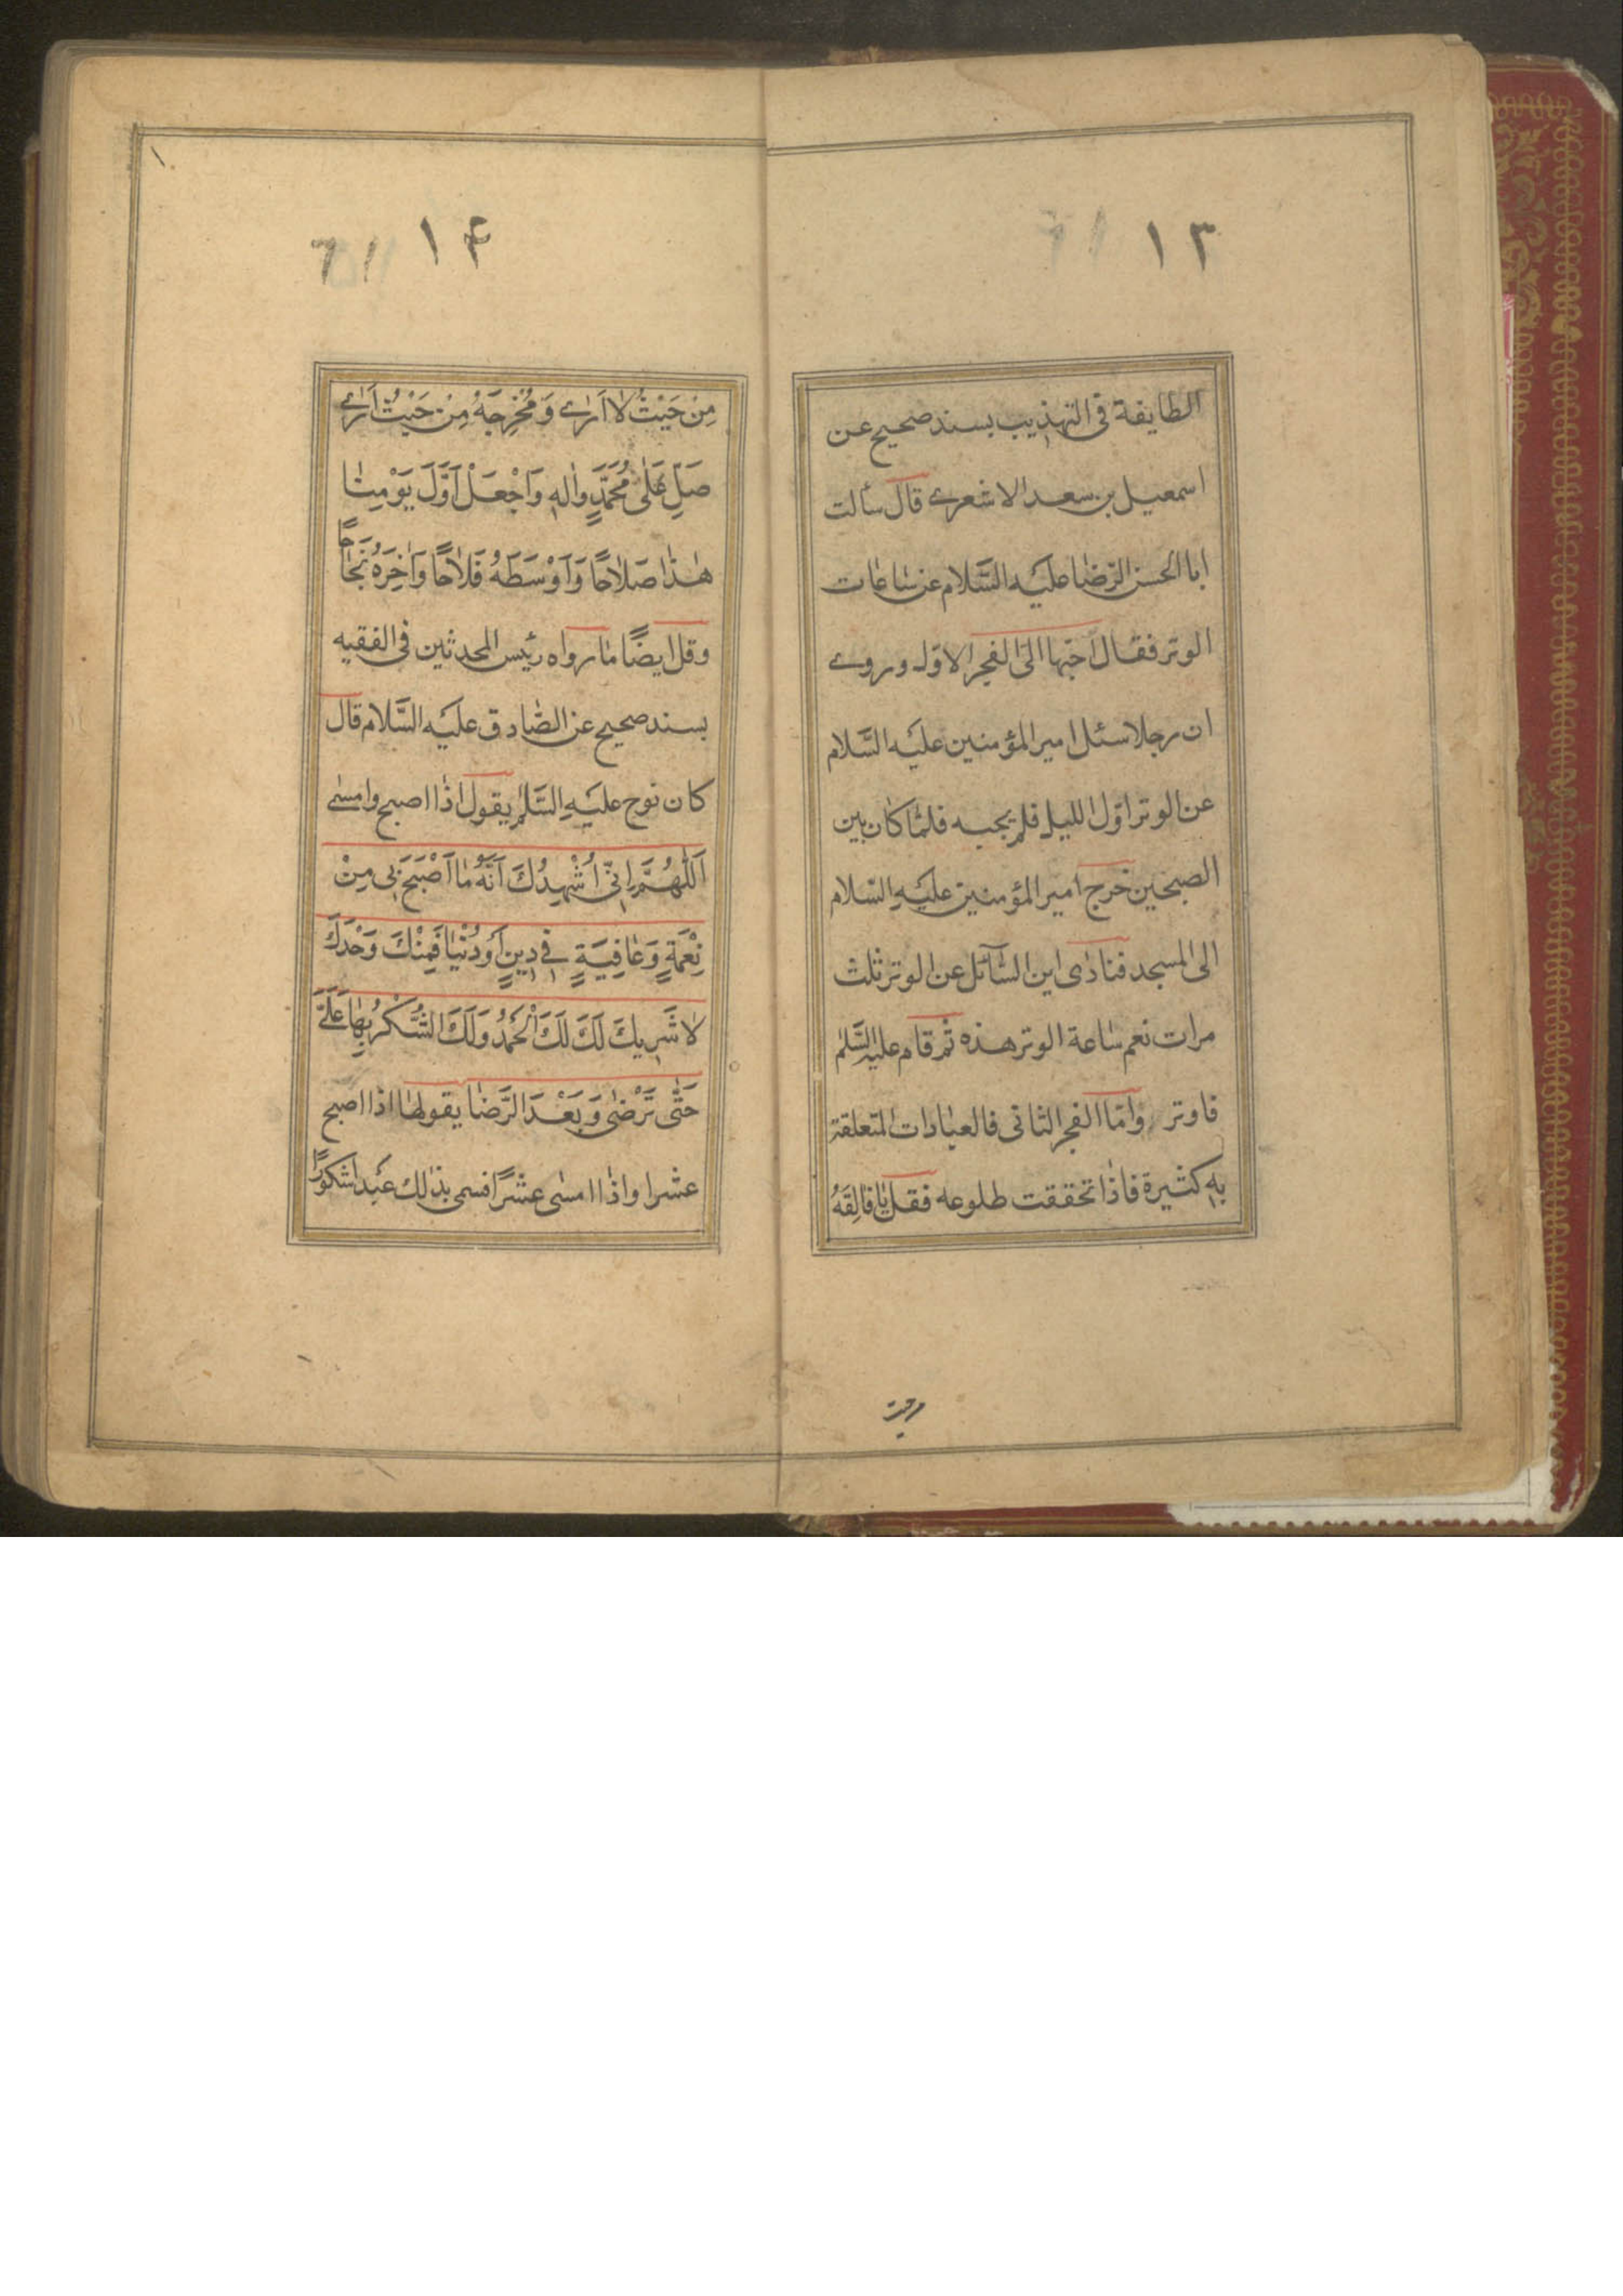 ١٣
الطايفة في التهذيب بسند صحيح عن
اسمعيل بن سعد الاشعرى قال سألت
ابا الحسن الرّضا عليه السَّلام عن ساعات
الوتر فقال احبّها الىَ الفجر الاوّل وروى
ان رجلا سئل امير المؤمنين عليه السَّلام
عن الوتر اوّل الليل فلم يجبه فلمّا كان بين
الصبحين خرج امير المؤمنين عليهِ السّلام
الى المسجد فنادى اين السّآئل عن الوتر ثلث
مرات نعم ساعة الوتر هذه ثم قام عليه السَّلم
فاوتر وامّا الفجر الثانى فالعبادات المتعلقة
بهِ كثيرة فاذا تحققت طلوعه فقل يا فالِقَهُ
مِنْ حيث
١۴
مِنْ حَيْثُ لا اَرى وَ مُخْرِجَهُ مِنْ حَيْثُ اَرى
صَلِّ عَلى مُحَمَّدٍ وَالِهِ وَاجْعَلْ اَوَّلَ يَوْمِنا
هذا صَلاحًا وَاَوْسَطَهُ فَلاحًا وَاخِرَهُ نَجاحًا
وقل ايضًا ما رواه رئيس المحدثين فى الفقيه
بسند صحيح عن الصّادق عليه السَّلام قال
كان نوح عليهِ السَّلم يقول اذا اصبح وامسى
اَللّهُمَّ اِنّى اُشْهِدُكَ اَنَّهُ ما اَصْبَحَ بى مِنْ
نِعْمَةٍ وَعافِيَةٍ فى دينٍ اَوْ دُنْيا فَمِنْكَ وَحْدَكَ
لا شَريكَ لَكَ لَكَ الْحَمْدُ وَلَكَ الشُّكْرُ بِها عَلَىَّ
حَتّى تَرْضى وَبَعْدَ الرِّضا يقولها اذا اصبح
عشرا واذا امسى عشرًا فسمى بذلك عَبْدا شكورًا